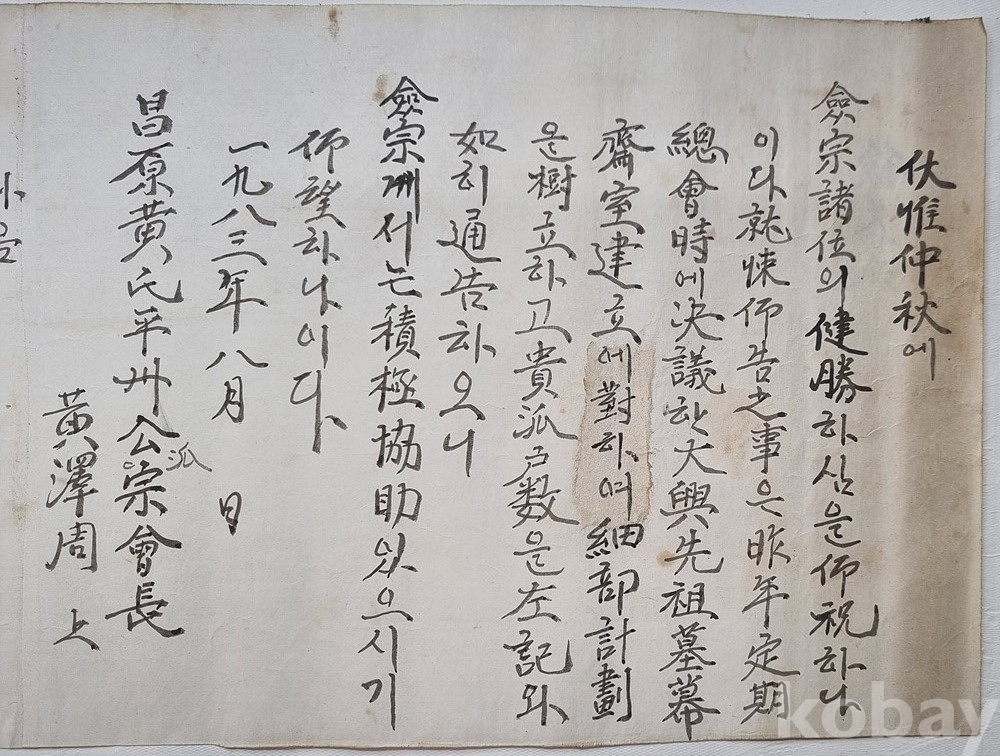 伏惟仲秋에
僉宗諸位의健勝하심을仰祝하나
이다就悚仰告之事은昨年定期
總會時에決議한大興先祖墓幕
齋室建立에對하여細部計劃
을樹立하고貴派戶数을左記와
如히通告하오니
僉宗께서는積極協助있으시기
仰望하나이다
一九八三年 八月 日
昌原黃氏平州公派宗會長
黃澤周 上
kobay